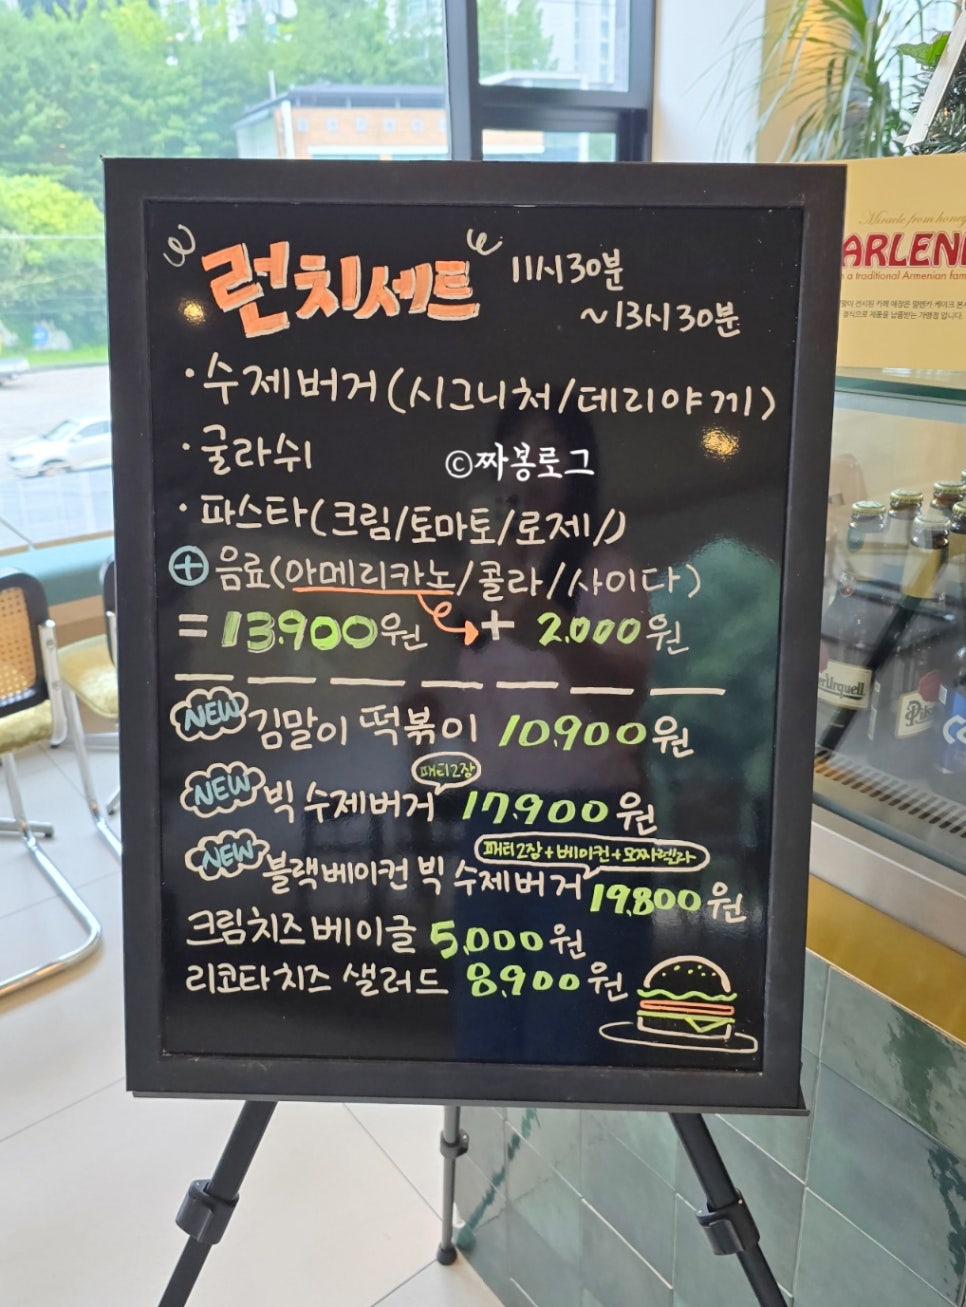 "런치세트" 11시30분
~13시30분
· 수제버거(시그니처/데리야끼)
· 굴라쉬
©짜봉로그
· 파스타(크림/토마토/로제)
+ 음료(아메리카노/콜라/사이다)
= 13.900원 + 2.000원
NEW 김말이 떡볶이 10.900원
패티2장
NEW 빅 수제버거 17.900원
패티2장+베이컨+모짜렐라
NEW 블랙베이컨 빅 수제버거 19.800원
크림치즈 베이글 5.000원
리코타치즈 샐러드 8.900원
Miracle from honey
ARLEN
a traditional Armenian fam
erUrquell